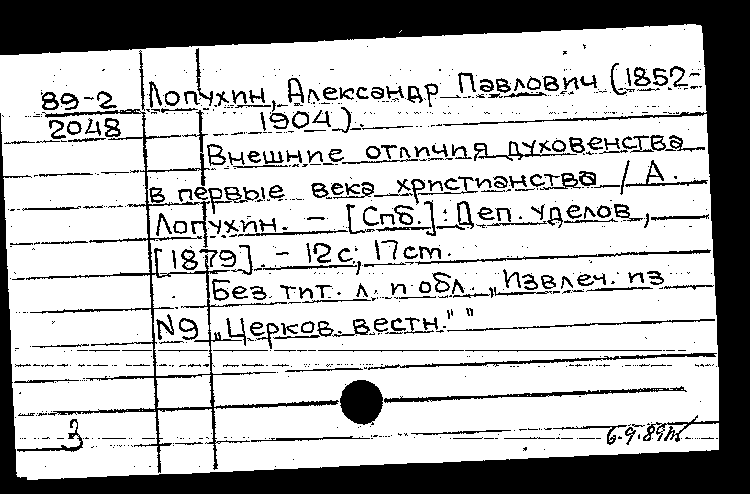 89-2 Лопухин, Александр Павлович (1852-
2048 1904).
Внешние отличия духовенства
в первые века христианства / А.
Лопухин. – [Спб.]: Деп. уделов,
[1879]. – 12 с; 17 cm.
Без тит. л. и обл. „Извлеч. из
N9 „Церков. вестн.""
3
6.9.89